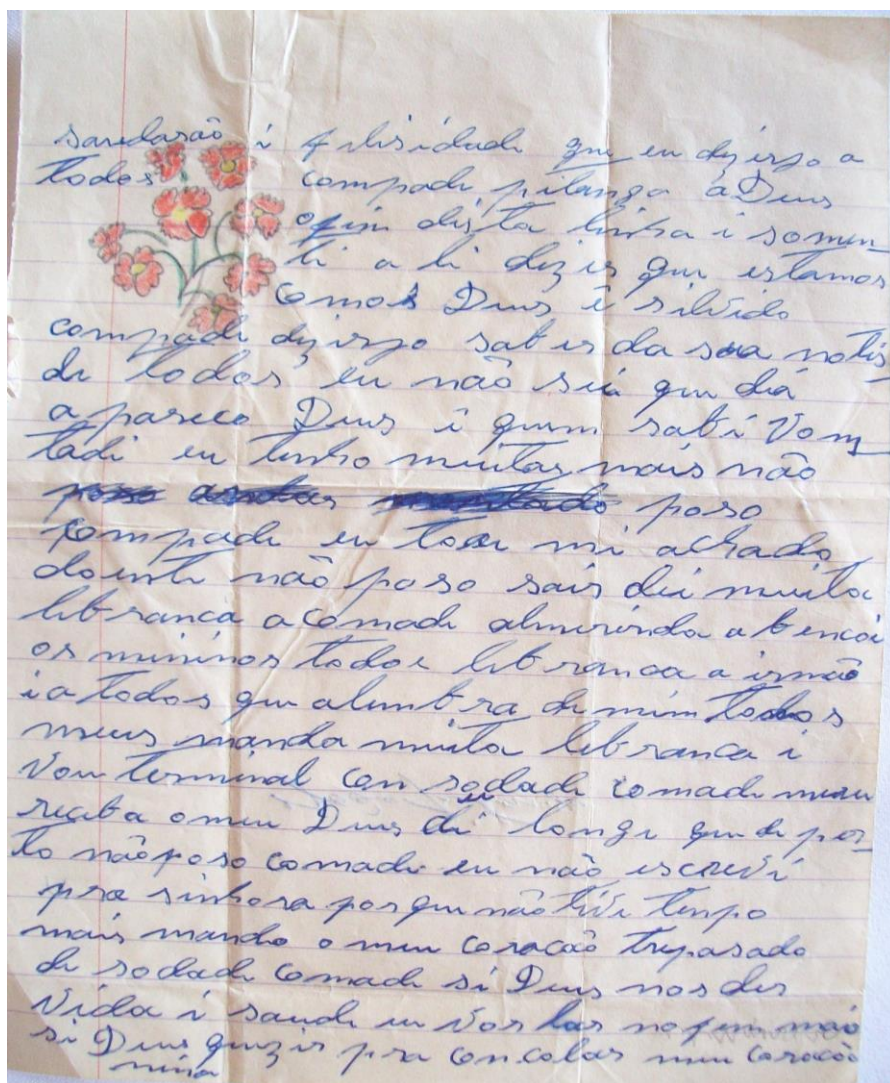 saudasão i filisidade que eu dizirjo a
todos compade pitanga a Deus
o fim dista linha i somen
ti a li dizir que estamos
como Deus é silvido
compade dizirjo sabir da sua notis
di todos eu não sei que dia
a pareco Deus i quem sabi Vom
tadi eu tenho muitas mais não
poso
compade eu tou mi achado
doenti não poso sair dei muita
libranca a Comade almerinda a bencoi
os mininos todos libranca a irmão
i a todos que alimbra di mim todos
meus manda muita libranca i
Vou terminal Con sodade Comade
reciba o meu Deus di longi que di per
to não poso Comade eu não escrivi
pra sinhora porque não tivi tenpo
mais mando o meu Coracão trepasado
di sodade Comade si Deus nos der
Vida i saude eu vou no fim
si Deus quizir pra Concolar meu Coracão